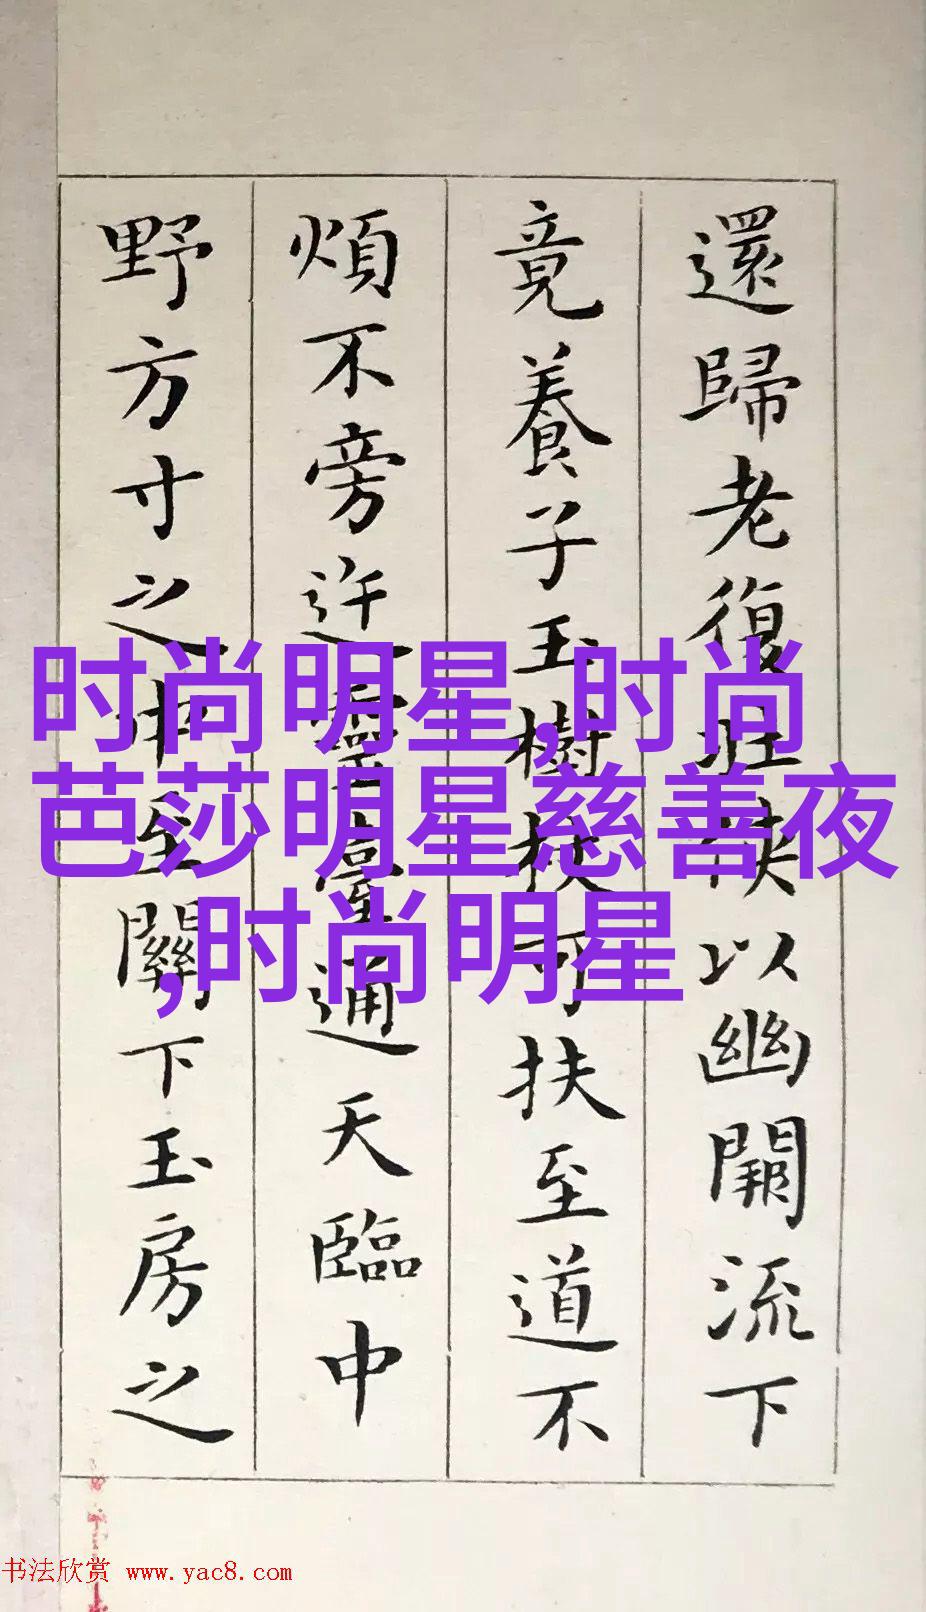 還歸老復壯俠以幽闕流下
竟養子玉樹扶可扶至道不
煩不旁迕靈臺通天臨中
野方寸之中至關下玉房之
时尚明星,时尚
芭莎明星慈善夜
,时尚明星
书法欣赏 www.yac8.com